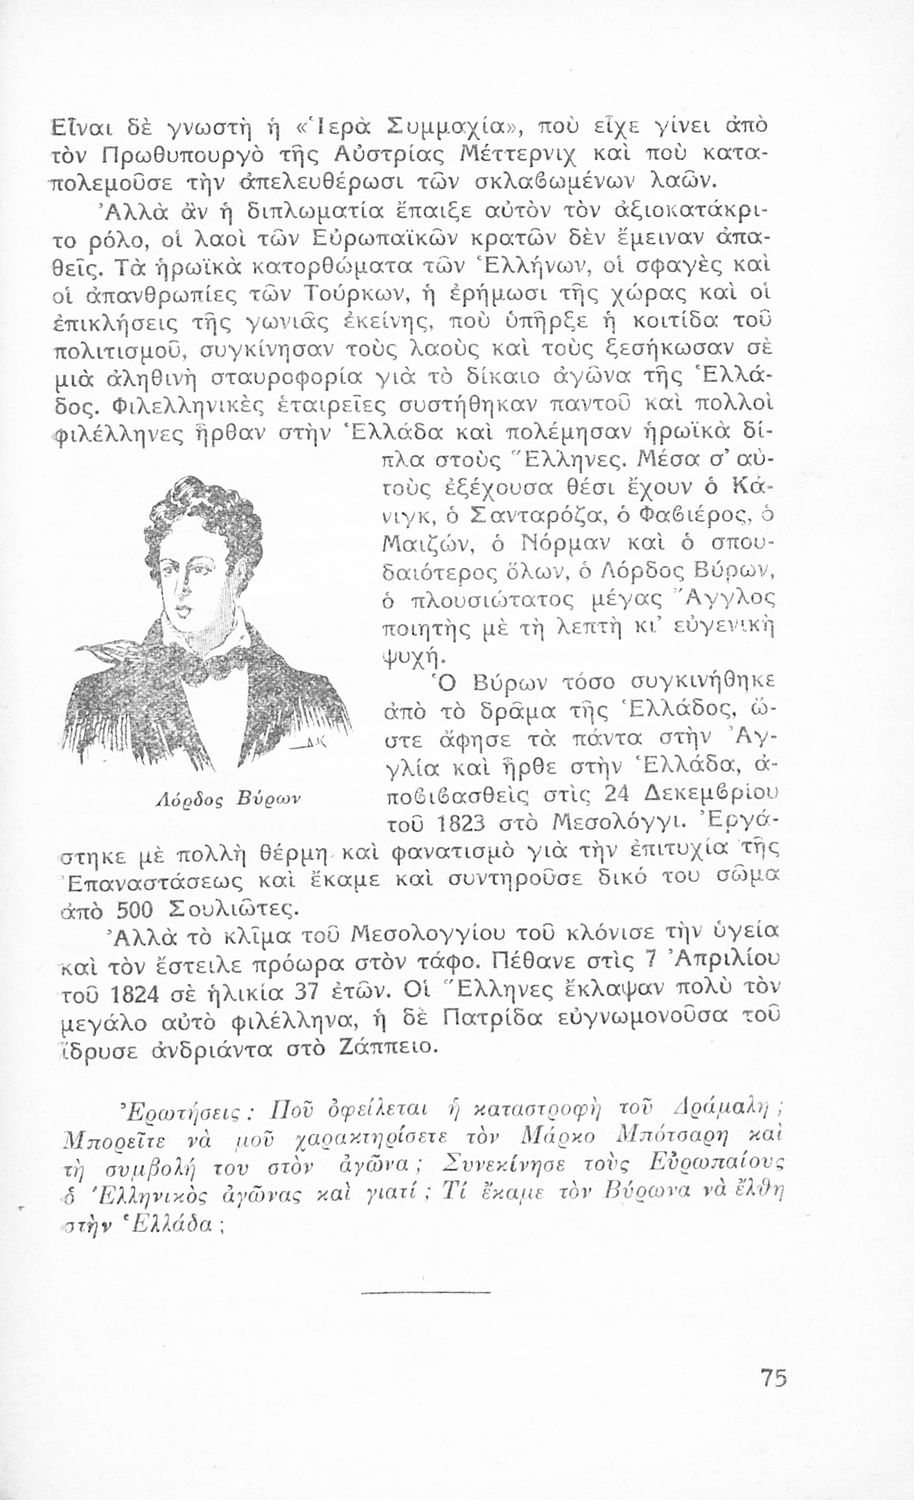 Εἶναι δὲ γνωστὴ ἡ «Ἱερὰ Συμμαχία», ποὺ εἶχε γίνει ἀπὸ
τὸν Πρωθυπουργὸ τῆς Αὐστρίας Μέττερνιχ καὶ ποὺ κατα-
πολεμοῦσε τὴν ἀπελευθέρωσι τῶν σκλαβωμένων λαῶν.
Ἀλλὰ ἂν ἡ διπλωματία ἔπαιξε αὐτὸν τὸν ἀξιοκατάκρι-
το ρόλο, οἱ λαοὶ τῶν Εὐρωπαϊκῶν κρατῶν δὲν ἔμειναν ἀπα-
θεῖς. Τὰ ἡρωϊκὰ κατορθώματα τῶν Ἑλλήνων, οἱ σφαγὲς καὶ
οἱ ἀπανθρωπίες τῶν Τούρκων, ἡ ἐρήμωσι τῆς χώρας καὶ οἱ
ἐπικλήσεις τῆς γωνιᾶς ἐκείνης, ποὺ ὑπῆρξε ἡ κοιτίδα τοῦ
πολιτισμοῦ, συγκίνησαν τοὺς λαοὺς καὶ τοὺς ξεσήκωσαν σὲ
μιὰ ἀληθινὴ σταυροφορία γιὰ τὸ δίκαιο ἀγῶνα τῆς Ἑλλά-
δος. Φιλελληνικὲς ἑταιρεῖες συστήθηκαν παντοῦ καὶ πολλοὶ
φιλέλληνες ἦρθαν στὴν Ἑλλάδα καὶ πολέμησαν ἡρωϊκὰ δί-
πλα στοὺς Ἕλληνες. Μέσα σ' αὐ-
τοὺς ἐξέχουσα θέσι ἔχουν ὁ Κά-
νιγκ, ὁ Σανταρόζα, ὁ Φαβιέρος, ὁ
Μαιζών, ὁ Νόρμαν καὶ ὁ σπου-
δαιότερος ὅλων, ὁ Λόρδος Βύρων,
ὁ πλουσιώτατος μέγας Ἄγγλος
ποιητὴς μὲ τὴ λεπτὴ κι' εὐγενικὴ
ψυχή.
Ὁ Βύρων τόσο συγκινήθηκε
ἀπὸ τὸ δρᾶμα τῆς Ἑλλάδος, ὥ-
στε ἄφησε τὰ πάντα στὴν Ἀγ-
γλία καὶ ἦρθε στὴν Ἑλλάδα, ἀ-
ποβιβασθεὶς στὶς 24 Δεκεμβρίου
τοῦ 1823 στὸ Μεσολόγγι. Ἐργά-
Λόρδος Βύρων
στηκε μὲ πολλὴ θέρμη καὶ φανατισμὸ γιὰ τὴν ἐπιτυχία τῆς
Ἐπαναστάσεως καὶ ἔκαμε καὶ συντηροῦσε δικό του σῶμα
ἀπὸ 500 Σουλιῶτες.
Ἀλλὰ τὸ κλῖμα τοῦ Μεσολογγίου τοῦ κλόνισε τὴν ὑγεία
καὶ τὸν ἔστειλε πρόωρα στὸν τάφο. Πέθανε στὶς 7 Ἀπριλίου
τοῦ 1824 σὲ ἡλικία 37 ἐτῶν. Οἱ Ἕλληνες ἔκλαψαν πολὺ τὸν
μεγάλο αὐτὸ φιλέλληνα, ἡ δὲ Πατρίδα εὐγνωμονοῦσα τοῦ
ἵδρυσε ἀνδριάντα στὸ Ζάππειο.
Ἐρωτήσεις : Ποῦ ὀφείλεται ἡ καταστροφὴ τοῦ Δράμαλη ;
Μπορεῖτε νὰ μοῦ χαρακτηρίσετε τὸν Μάρκο Μπότσαρη καὶ
τὴ συμβολή του στὸν ἀγῶνα ; Συνεκίνησε τοὺς Εὐρωπαίους
ὁ Ἑλληνικὸς ἀγῶνας καὶ γιατί ; Τί ἔκαμε τὸν Βύρωνα νὰ ἔλθη
στὴν Ἑλλάδα ;
75